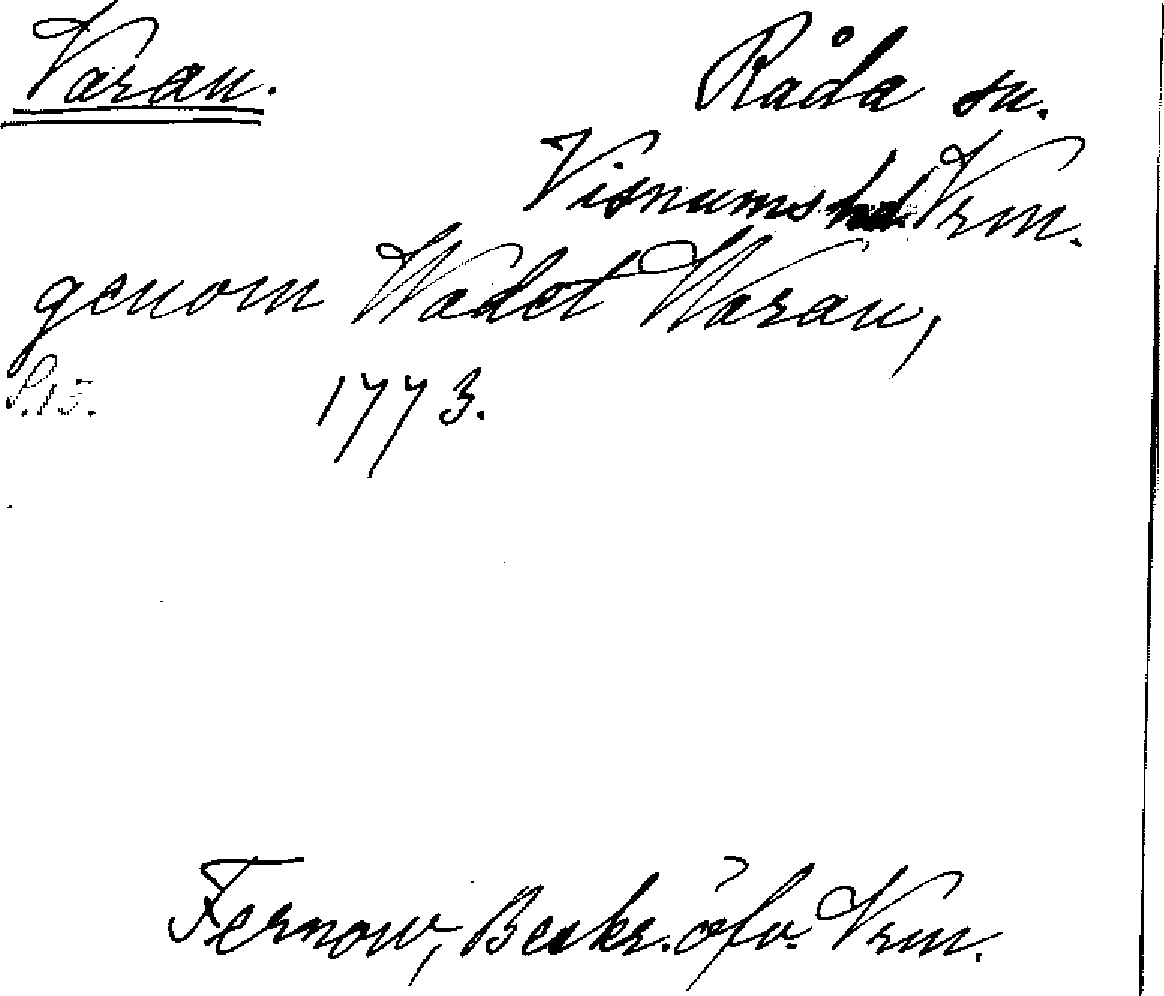 Varan.
Råda sn.
Visnums hd. Vrm.
genom Wadet Waran,
S. 15. 1773.
Fernow, Beskr. öfv. Vrm.